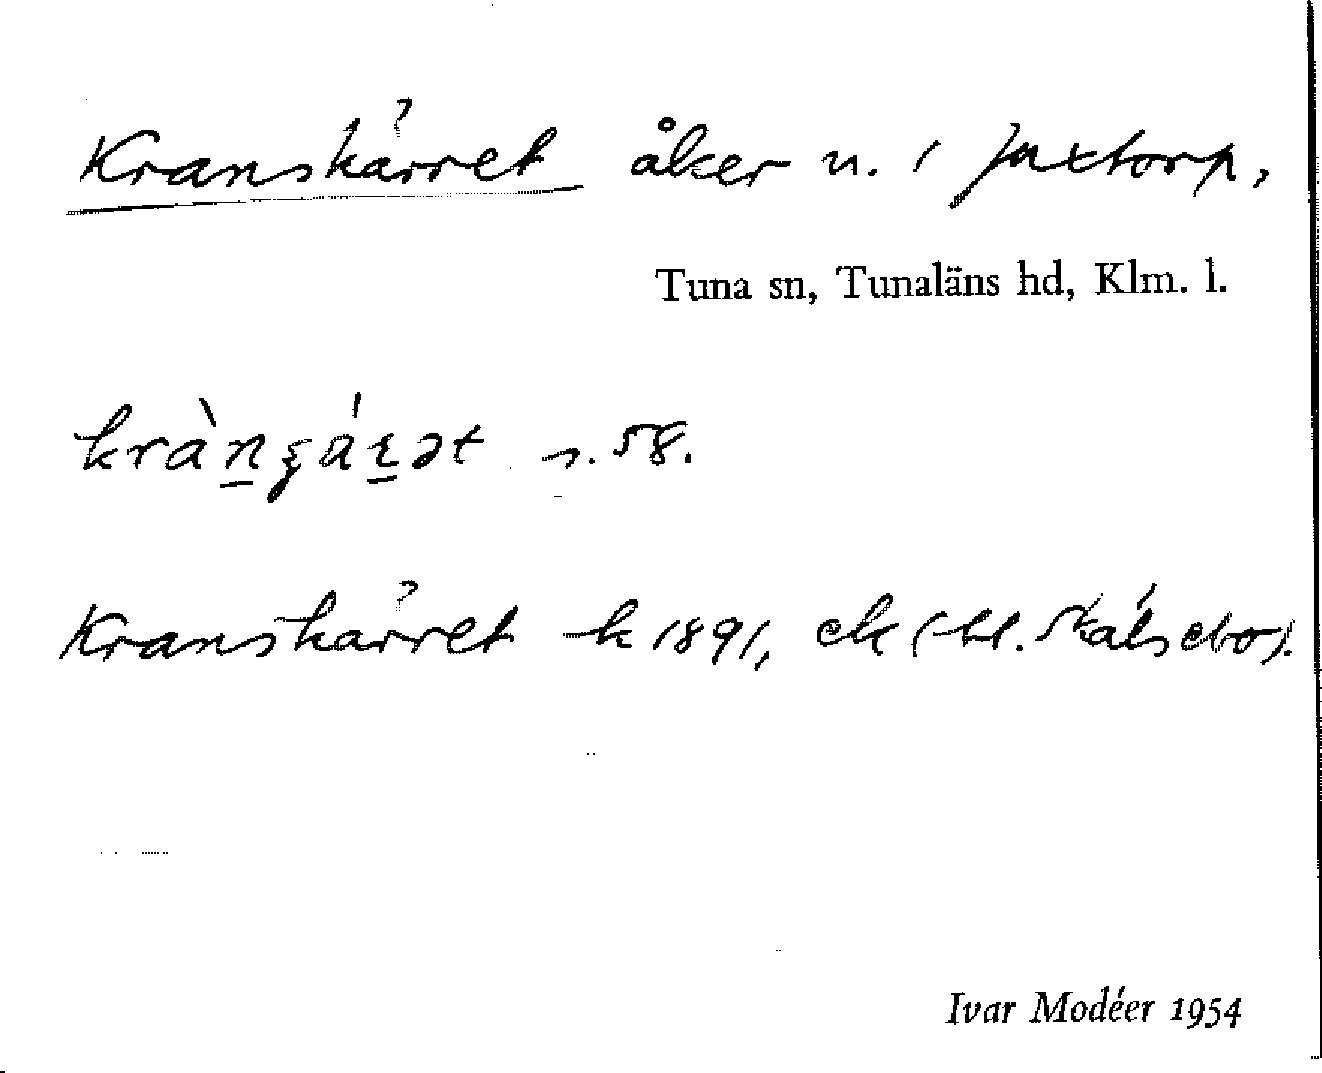 Kranskärret åker n. i Juxtorp,
Tuna sn, Tunaläns hd, Klm. l.
s. 58.
Kranskärret k 1891, ek (bl. Skälsebo).
Ivar Modéer 1954